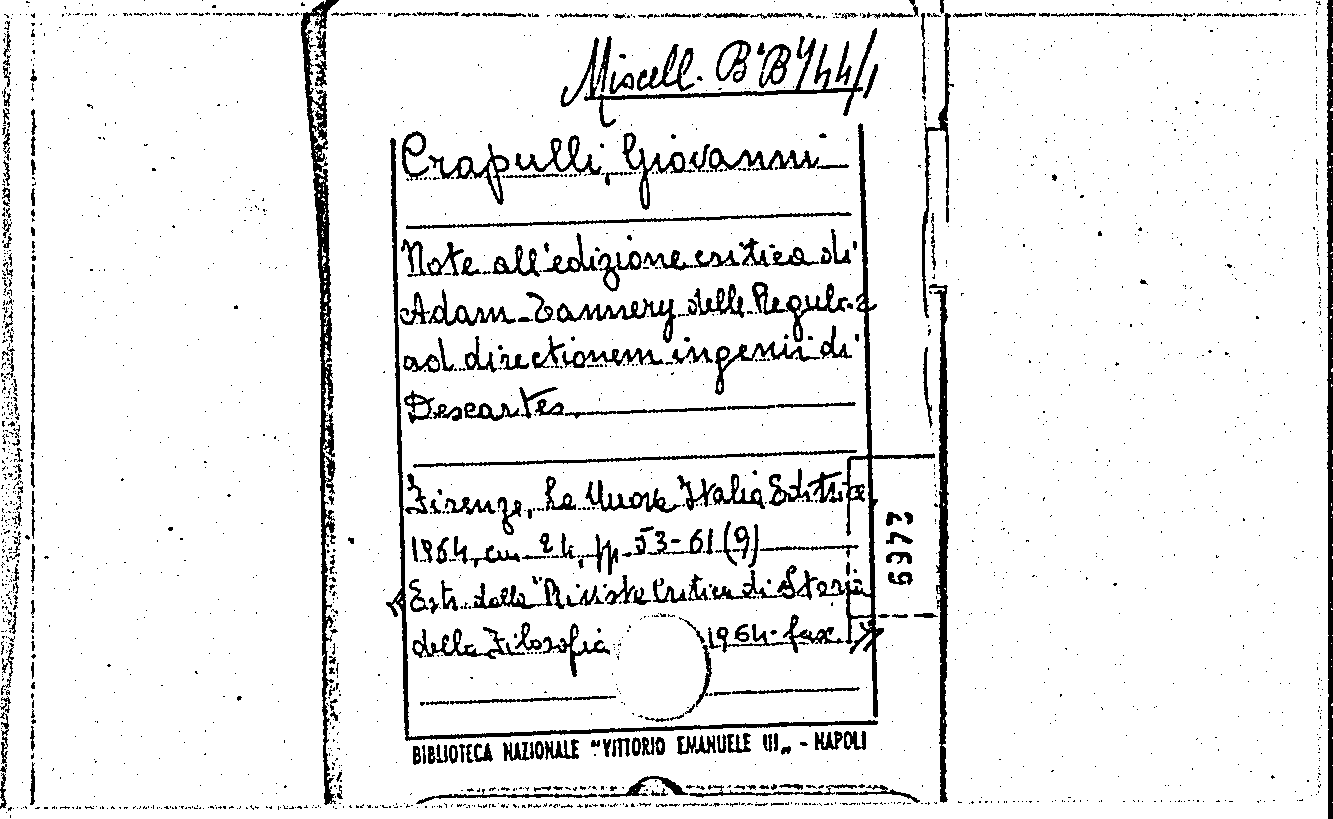 Miscell. B'B'44/1
Crapulli, Giovanni
Note all'edizione critica di
Adam-Tannery delle Regulae
ad directionem ingenii di
Descartes.
Firenze, La Nuova Italia Editrice,
1964, cm. 24, pp. 53-61 (9)
Estr. dalla "Rivista Critica di Storia
della Filosofia 1964- fasc.
6972
BIBLIOTECA NAZIONALE "VITTORIO EMANUELE III„ - NAPOLI